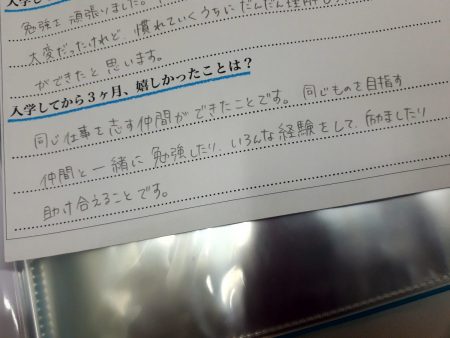 入学して
勉強を頑張りました。
大変だったけれど、慣れていくうちにだんだん理解
ができたと思います。
入学してから3ヶ月、嬉しかったことは？
同じ仕事を志す仲間ができたことです。同じものを目指す
仲間と一緒に勉強したり、いろんな経験をして、励ましたり
助け合えることです。